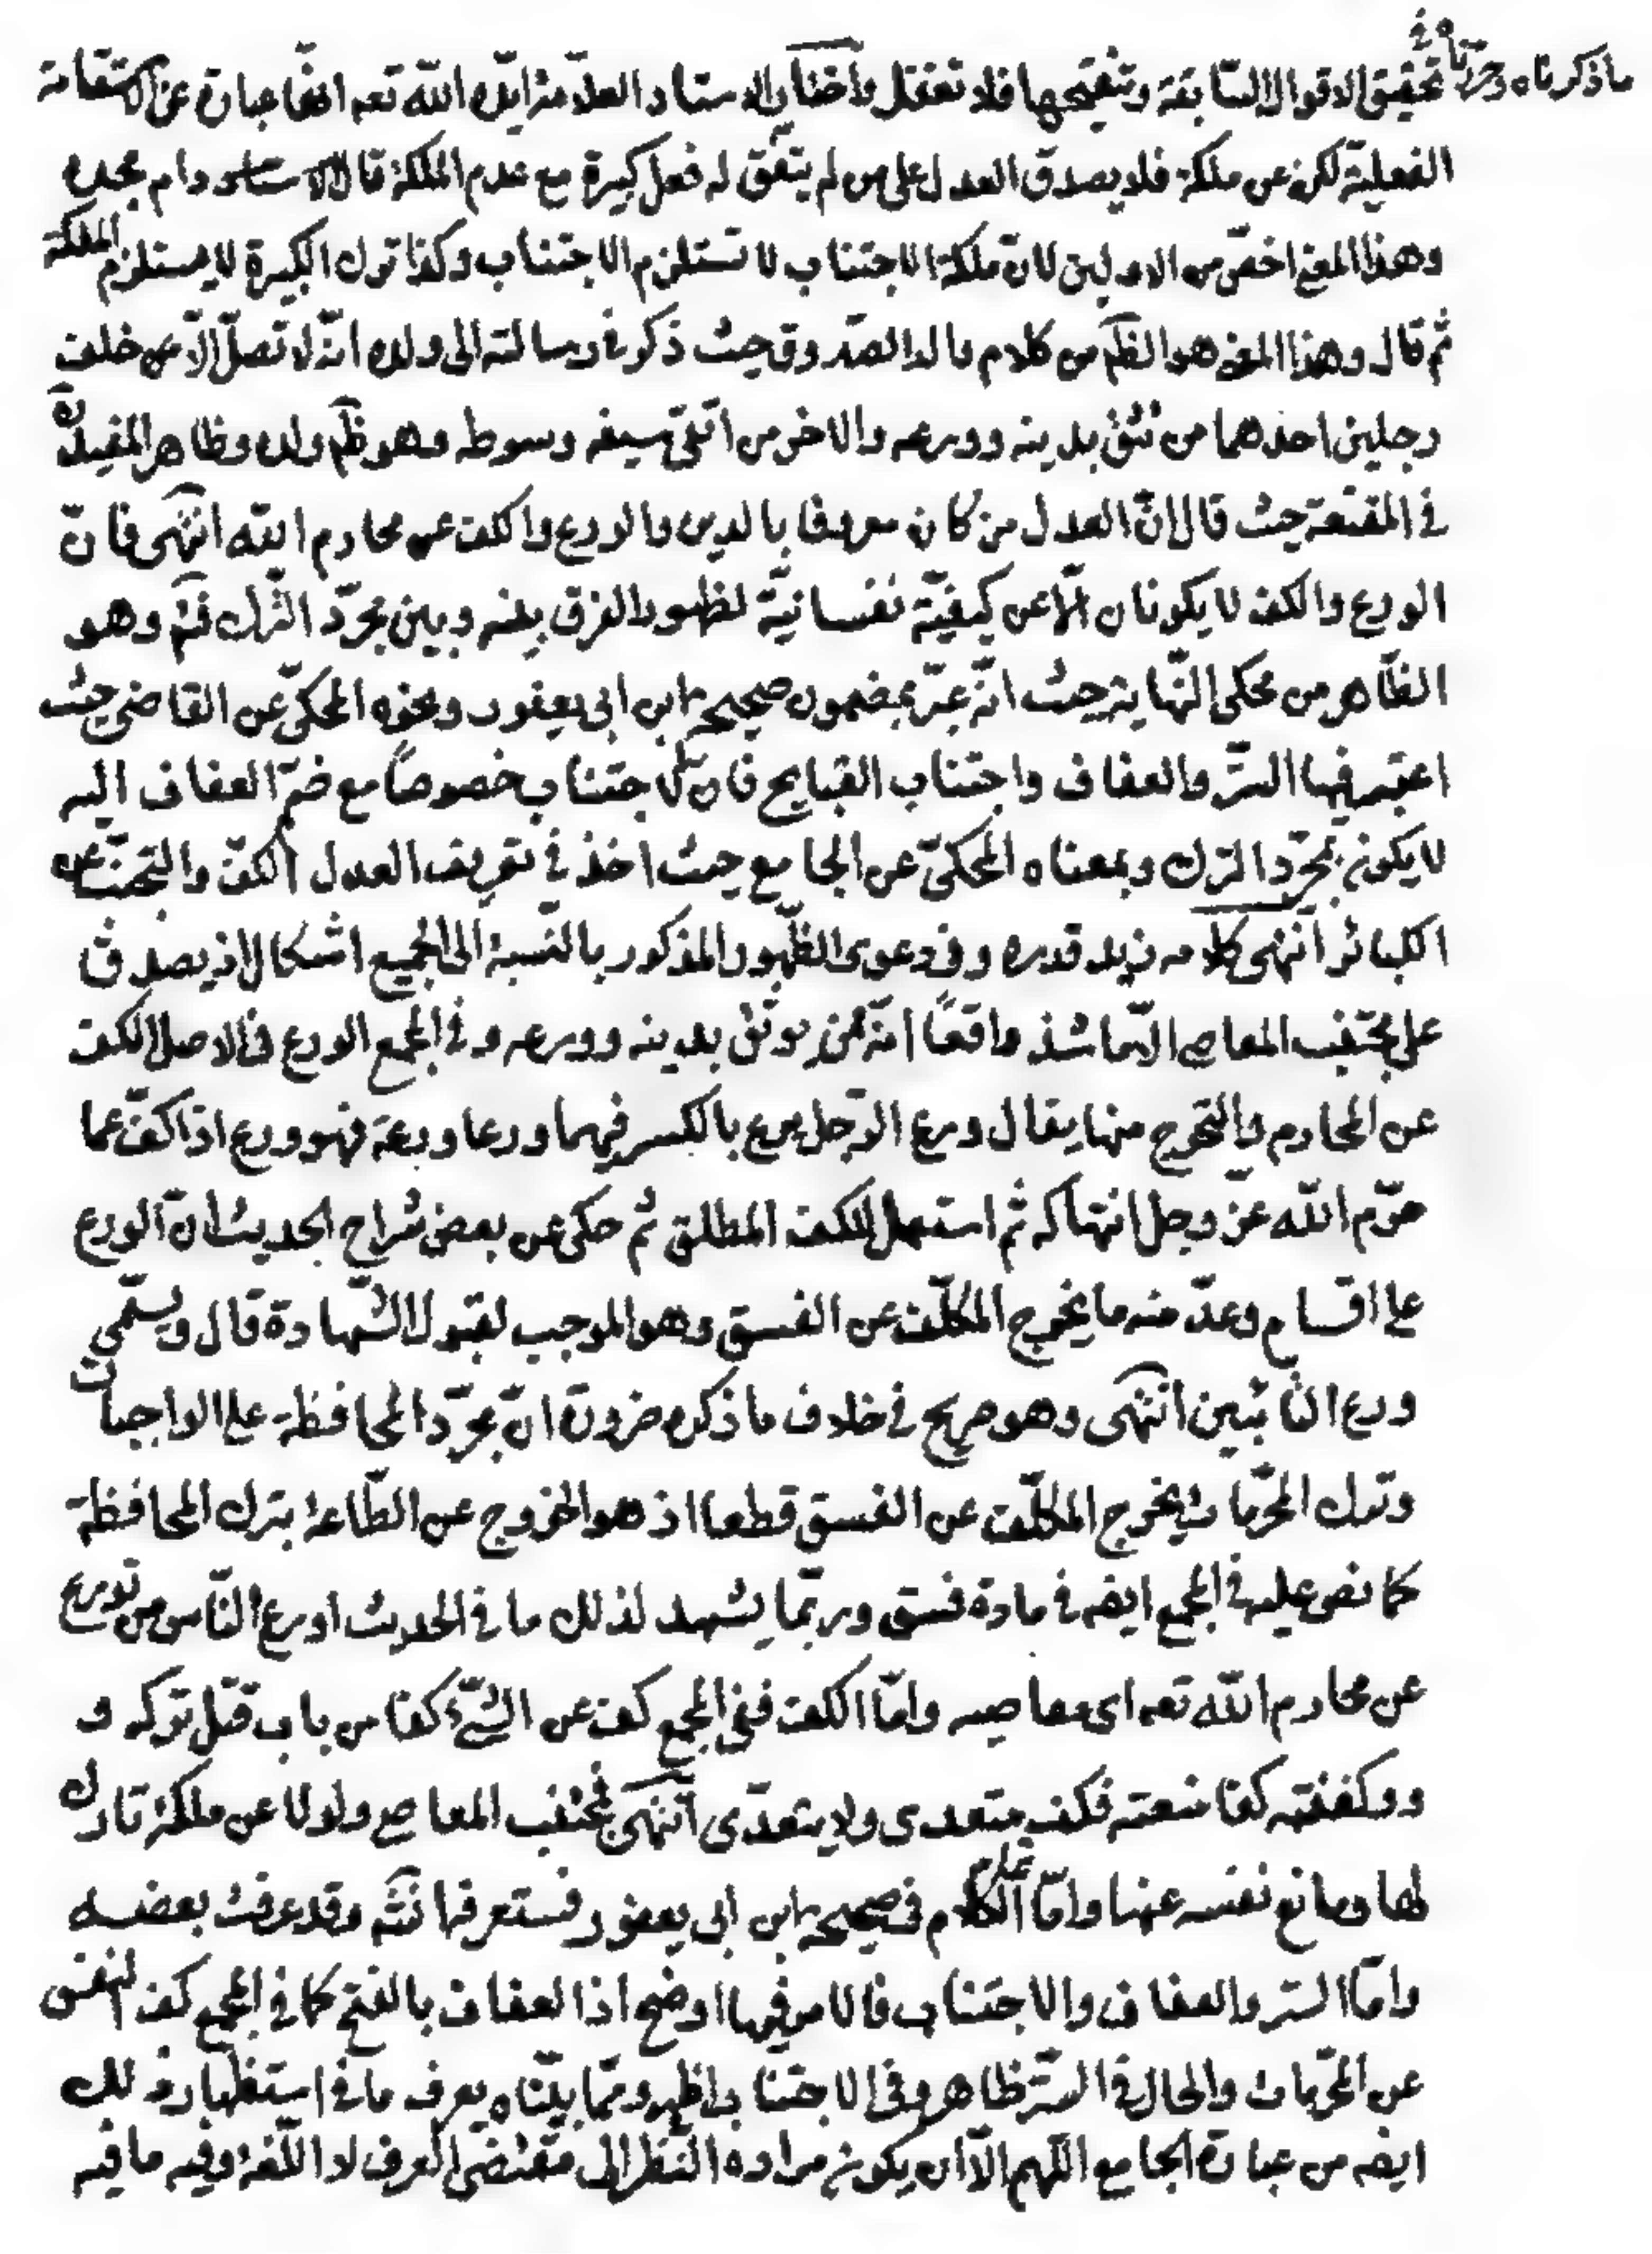 ماذكرناه وحرّرناه في تحقيق الاقوال السّابقة وتنقيحها فلا تغفل واختار الاستاد العلّامة ايّده اللّه تعه انّها عبارة عن الاستقامة
الفعليّة لكن عن ملكة فلا يصدق العدل على من لم يتّفق له فعل كبيرة مع عدم الملكة قال الاستاد دام مجده
وهذا المعنى اخصّ من الاولين لانّ ملكة الاجتناب لا تستلزم الاجتناب وكذا ترك الكبيرة لا يستلزم الملكة
ثم قال وهذا المعنى هو الظّم من كلام والد الصّدوق حيث ذكر في رسالته الى ولده انّه لا تصلّ الّا عن خلف
رجلين احدهما من تثق بدينه وورعه والاخر من اتّقى سيفه وسوطه وهو ظّم ولده وظاهر المفيد ره
في المقنعة حيث قال انّ العدل من كان معروفا بالدين والورع والكف عن محارم اللّه انتهى فانّ
الورع والكف لا يكونان الّا عن كيفيّة نفسانيّة لظهور الفرق بينه وبين مجرّد التّرك فتم وهو
الظّاهر من محكى النّهاية حيث انّه عبّر بمضمون صحيحة ابن ابى يعفور ونحوه المحكىّ عن القاضى حيث
اعتبر فيها السّتر والعفاف واجتناب القبايح فانّ الاجتناب خصوصاً مع ضمّ العفاف اليه
لا يكون بمجرّد الترك وبمعناه المحكىّ عن الجامع حيث اخذ في تعريف العدل الكفّ والتجنّب عن
الكبائر انتهى كلامه زيد قدره وفى دعوى الظّهور المذكور بالنّسبة الى الجميع اشكال اذ يصدق
على مجتنب المعاصى الّا ما شذ واقعاً انّه ممّن يوثق بدينه وورعه وفى المجمع الورع فى الاصل الكف
عن المحارم والتحرج منها يقال ورع الرّجل يرع بالكسر فيهما ورعا ورعة فهو ورع اذا كفّ عما
حرّم اللّه عزّ وجل انتهاكه ثم استعمل للكف المطلق ثم حكى عن بعض شراح الحديث انّ الورع
على اقسام وعدّ منه ما يخرج المكلّف عن الفسق وهو الموجب لقبول الشّهادة قال ويسمّى
ورع التّائبين انتهى وهو صريح في خلاف ما ذكره ضرورة انّ مجرّد المحافظة على الواجبات
وترك المحرّمات يخرج المكلّف عن الفسق قطعا اذ هو الخروج عن الطّاعة بترك المحافظة
كما نص عليه في المجمع ايضه في مادة فسق وربّما يشهد لذلك ما في الحديث اورع النّاس من تورع
عن محارم اللّه تعه اى معاصيه وامّا الكف ففى المجمع كف عن الشّئ كفا من باب قتل تركه و
وكففته كفا منعته فكف يتعدى ولا يتعدّى انتهى فمجتنب المعاصى ولو لا عن ملكة تارك
لها ومانع نفسه عنها وامّا تمام الكلام في صحيحة ابن ابى يعفور فستعرفها نتم وقد عرفت بعضه
وامّا الستر والعفاف والاجتناب فالامر فيها اوضح اذ العفاف بالفتح كما في المجمع كف النفس
عن المحرّمات والحال في السّتر ظاهر وفى الاجتناب اظهر وممّا بيّنّاه يعرف ما في استظهار ذلك
ايضه من عبارة الجامع اللّهم الّا ان يكون مراده النّظر الى مقتضى العرف لا اللّغة وفيه ما فيه